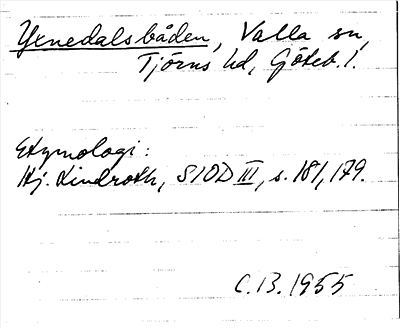 Yxnedalsbåden, Valla sn,
Tjörns hd, Göteb. l.
Etymologi:
Hj. Lindroth, SIOD III, s. 181, 179.
C.B. 1955